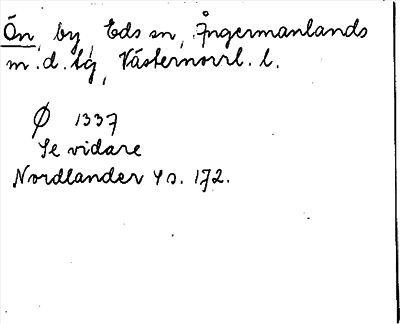 Ön, by, Eds sn, Ångermanlands
m. d. lg, Västernorrl. l.
Ø 1337
Se vidare
Nordlander 4 s. 172.